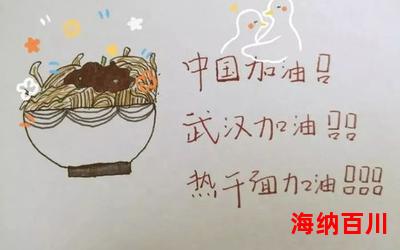 中国加油！
武汉加油！！
热干面加油！！！
海纳百川